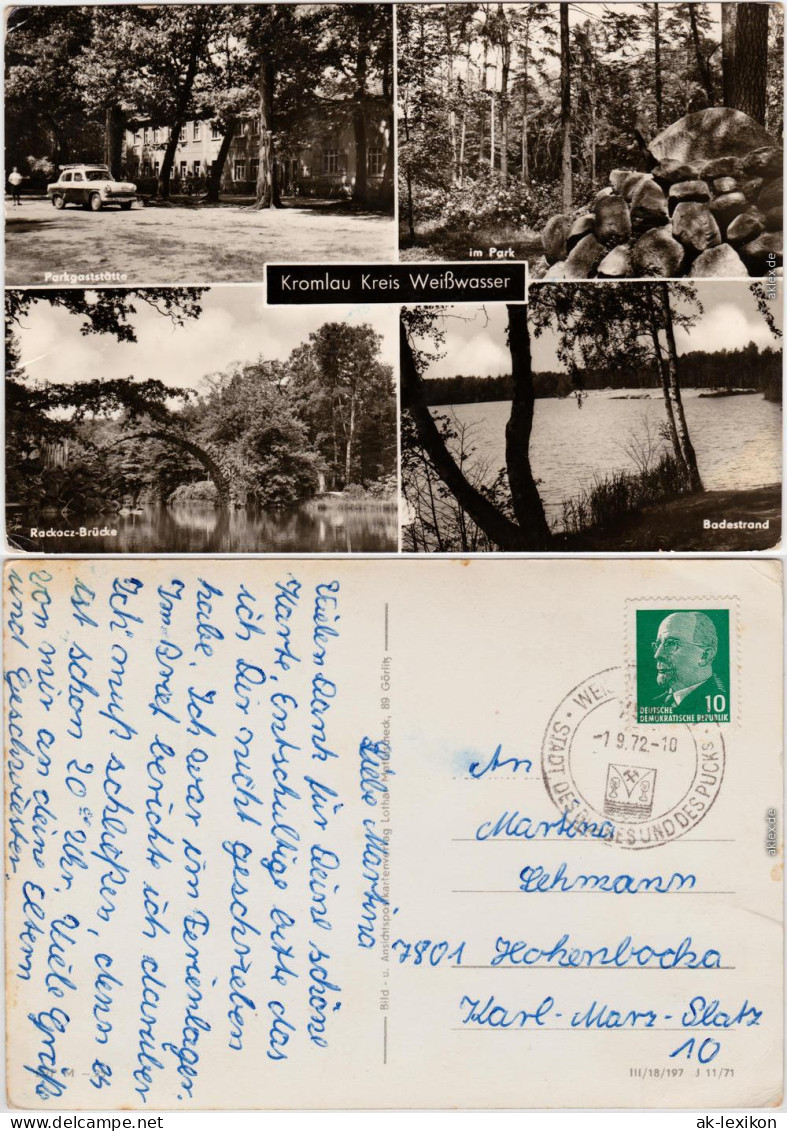 Parkgaststätte
im Park
Kromlau Kreis Weißwasser
Rackocz-Brücke
Badestrand
aklex.de
Liebe Martina
Vielen Dank für Deine schöne
Karte. Entschultige bitte das
ich Dir nicht geschrieben
habe. Ich war im Ferienlager.
Im Brief berichte ich darüber
Ich muß schließen, denn es
ist schon 20 Uhr. Viele Grüße
von mir an deine Eltern
und Geschwister.
Bild - u. Ansichtspostkartenverlag Lothar 89 Görlitz
DEUTSCHE
DEMOKRATISCHE REPUBLIK
10
-1.9.72-10
STADT DES GLASES UND DES PUCKS
An
Martina
Lehmann
7801 Hohenbocka
Karl-Marx-Platz
10
III/18/197 J 11/71
aklex.de
ak-lexikon